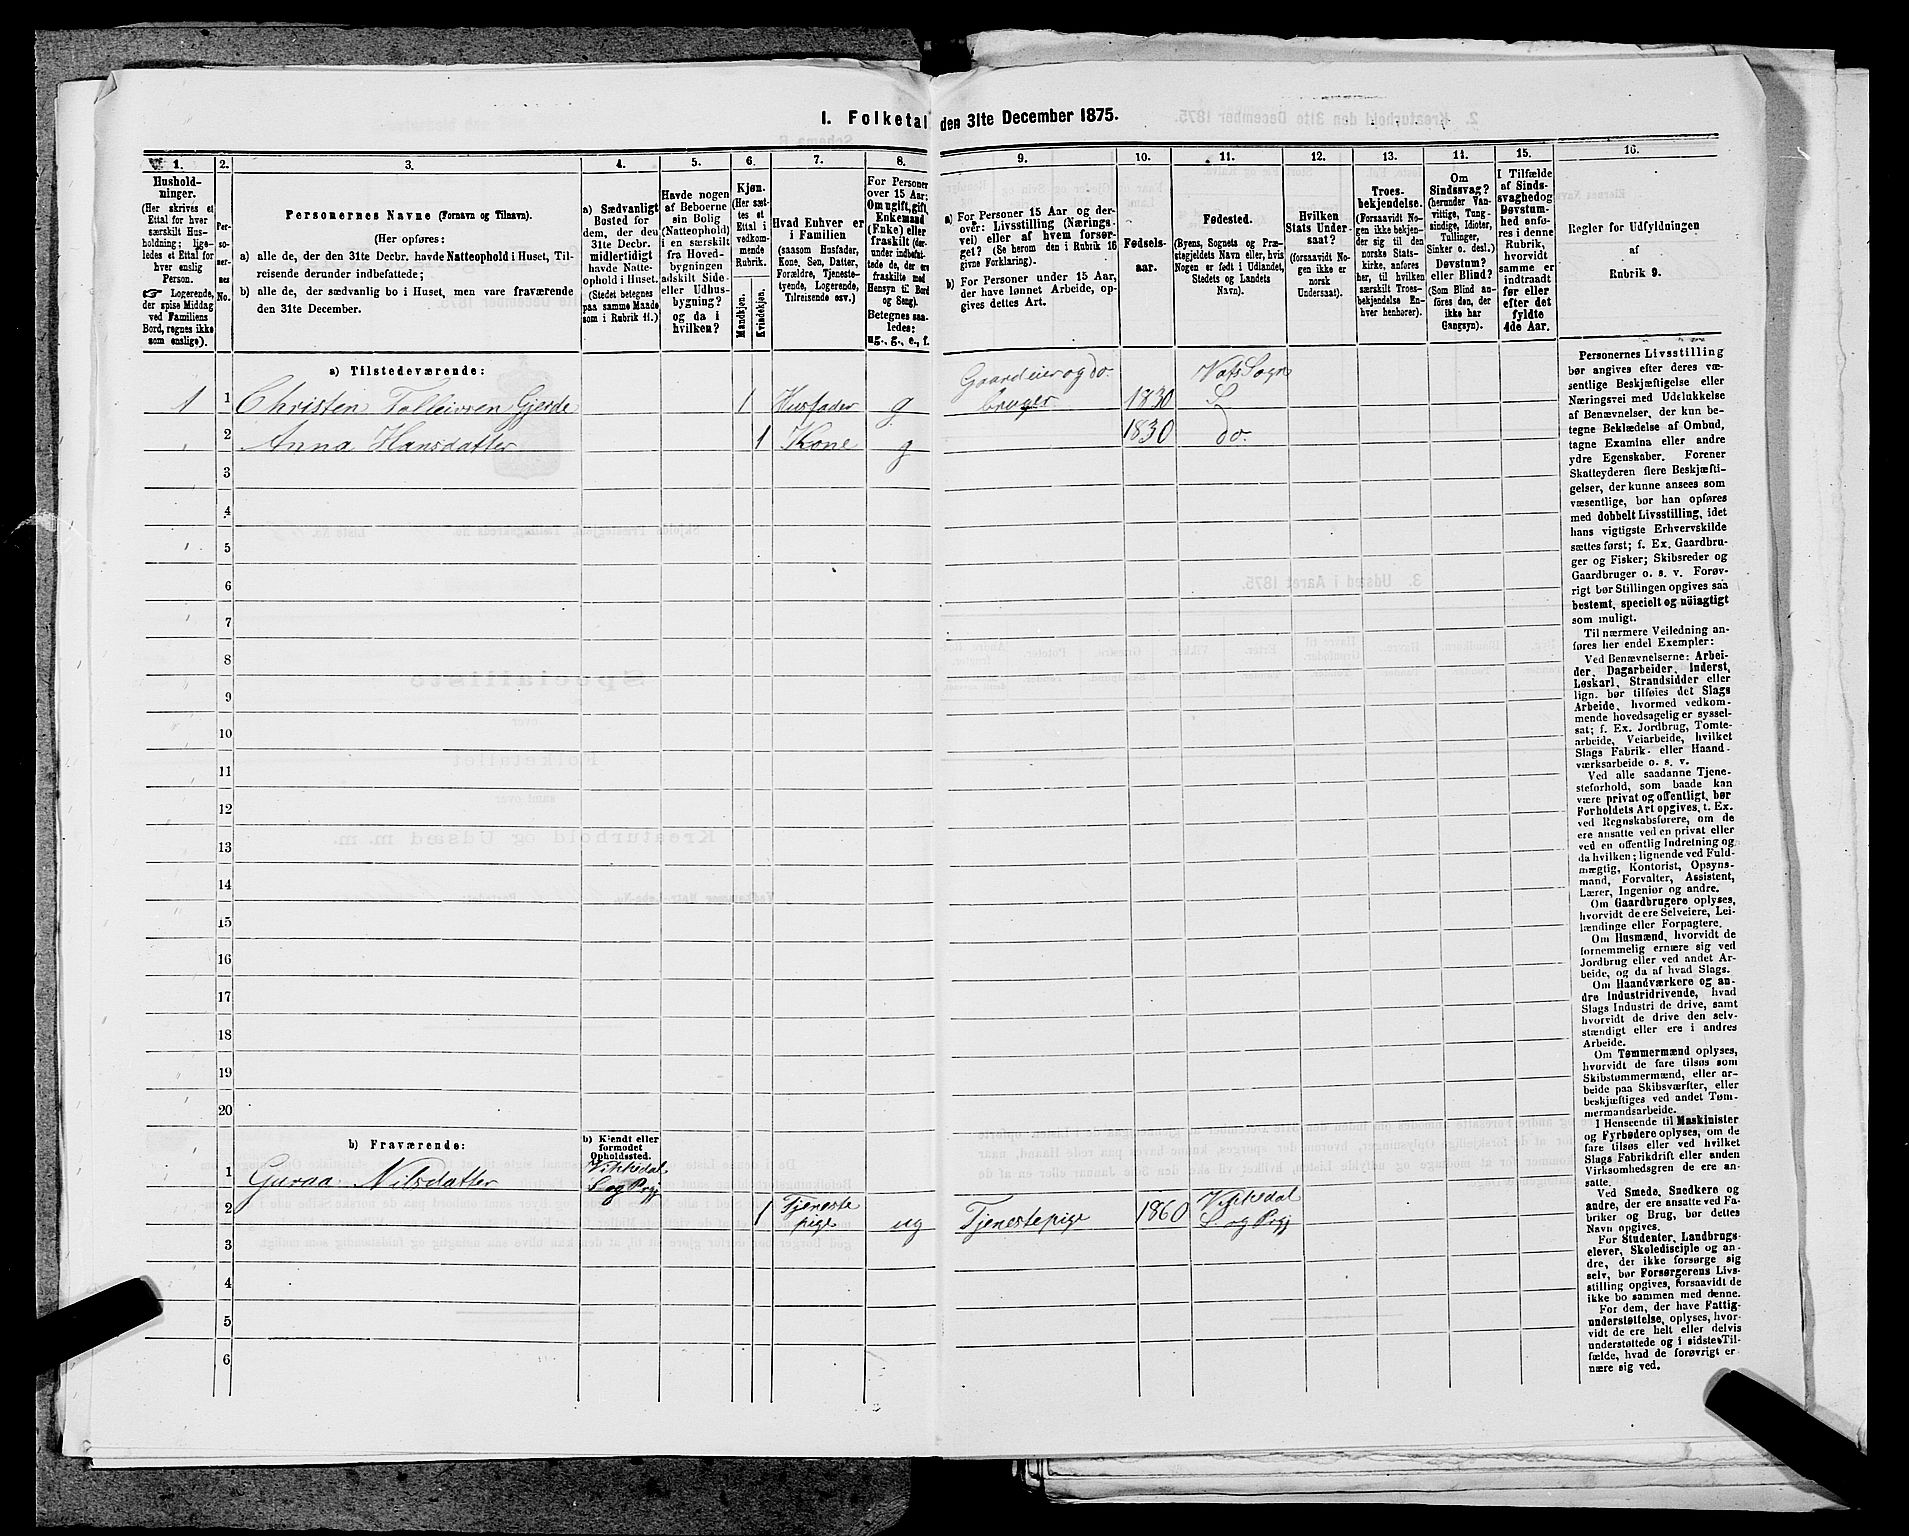 I. Folketal den 31te December 1875.
1. 2. 3. 4. 5. 6. 7. 8. 9. 10. 11. 12. 13. 14. 15. 16.
Hushold-
ninger.
(Her skrives et
Ettal for hver
særskilt Hus-
holdning; lige-
ledes et Ettal for
hver enslig
Person.
☞ Logerende,
der spise Middag
ved Familiens
Bord, regnes ikke
som enslige).
Per-
so-
ner-
nes
No.
Personernes Navne (Fornavn og Tilnavn).
(Her opføres:
a) alle de, der den 31te Decbr. havde Natteophold i Huset, Til-
reisende derunder indbefattede;
b) alle de, der sædvanlig bo i Huset, men vare fraværende
den 31te December.
a) Sædvanligt
Bosted for
dem, der den
31te Decbr.
midlertidigt
havde Natte-
ophold i Huset.
(Stedet betegnes
paa samme Maade
som i Rubrik 11.)
Havde nogen
af Beboerne
sin Bolig
(Natteophold)
i en særskilt
fra Hoved-
bygningen
adskilt Side-
eller Udhus-
bygning?
og da i
hvilken?
Kjøn.
(Her sæt-
tes et
Ettal i
vedkom-
mende
Rubrik.
Mandkjøn.
Kvindekjøn.
Hvad Enhver er
i Familien
(saasom Husfader,
Kone, Søn, Datter,
Forældre, Tjeneste-
tyende, Logerende,
Tilreisende osv.)
For Personer
over 15 Aar:
Om ugift, gift,
Enkemand
(Enke) eller
fraskilt (der-
under indbefat-
tede de, der ere
fraskilte med
Hensyn til Bord
og Seng).
Betegnes saa-
ledes:
ug., g., e., f.
a) For Personer 15 Aar og der-
over: Livsstilling (Nærings-
vei) eller af hvem forsør-
get? (Se herom den i Rubrik 16
givne Forklaring).
b) For Personer under 15 Aar,
der have lønnet Arbeide, op-
gives dettes Art.
Fødsels-
aar.
Fødested.
(Byens, Sognets og Præ-
stegjeldets Navn eller, hvis
Nogen er født i Udlandet,
Stedets og Landets
Navn).
Hvilken
Stats Under-
saat?
(forsaavidt No-
gen ikke er
norsk
Undersaat).
Troes-
bekjendelse.
(Forsaavidt No-
gen ikke bekjen-
der sig til den
norske Stats-
kirke, anføres
her, til hvilken
særskilt Troes-
bekjendelse En-
hver henhører).
Om
Sindssvag?
(herunder Van-
vittige, Tung-
sindige, Idioter,
Tullinger,
Sinker o. desl.)
Døvstum?
eller Blind?
(Som Blind an-
føres den, der
ikke har
Gangsyn).
I Tilfælde
af Sinds-
svaghed og
Døvstum-
hed anfø-
res i denne
Rubrik,
hvorvidt
samme er
indtraadt
før eller
efter det
fyldte
4de Aar.
Regler for Udfyldningen
af
Rubrik 9.
a) Tilstedeværende:
1 1 Christen Tolleivsen Gjerde 1 Husfader g Gaardeier og do. bruger 1830 Vats Sogn
2 Anna Hansdatter 1 Kone g 1830 do.
3
4
5
6
7
8
9
10
11
12
13
14
15
16
17
18
19
20
b) Fraværende:
b) Kjendt eller
formodet
Opholdssted.
1 Guroa Nilsdatter Vikkedal S og Prgj
2 1 Tjeneste pige ug Tjenestepige 1860 Vikkedal S og Prgj
3
4
5
6
Personernes Livsstilling
bør angives efter deres væ-
sentlige Beskjæftigelse eller
Næringsvei med Udelukkelse
af Benævnelser, der kun be-
tegne Beklædelse af Ombud,
tagne Examina eller andre
ydre Egenskaber. Forener
Skatteyderen flere Beskjæfti-
gelser, der kunne ansees som
væsentlige, bør han opføres
med dobbelt Livsstilling, idet
hans vigtigste Erhvervskilde
sættes først; f. Ex. Gaardbru-
ger og Fisker; Skibsreder og
Gaardbruger o. s. v. Forøv-
rigt bør Stillingen opgives saa
bestemt, specielt og nöiagtigt
som muligt.
Til nærmere Veiledning an-
føres her endel Exempler:
Ved Benævnelserne: Arbei-
der, Dagarbeider, Inderst,
Løskarl, Strandsidder eller
lign. bør tilføies det Slags
Arbeide, hvormed vedkom-
mende hovedsagelig er syssel-
sat; f. Ex. Jordbrug, Tomte-
arbeide, Veiarbeide, hvilket
Slags Fabrik- eller Haand-
værksarbeide o. s. v.
Ved alle saadanne Tjene-
steforhold, som baade kan
være privat og offentligt, bør
Forholdets Art opgives, t. Ex.
ved Regnskabsførere, om de
ere ansatte ved en privat eller
ved en offentlig Indretning og
da hvilken; lignende ved Fuld-
mægtig, Kontorist, Opsyns-
mand, Forvalter, Assistent,
Lærer, Ingeniør og andre.
Om Gaardbrugere oplyses,
hvorvidt de ere Selveiere, Lei-
lændinge eller Forpagtere.
Om Husmænd, hvorvidt de
fornemmelig ernære sig ved
Jordbrug eller ved andet Ar-
beide, og da af hvad Slags.
Om Haandværkere og an-
dre Industridrivende, hvad
Slags Industri de drive, samt
hvorvidt de drive den selv-
stændigt eller ere i andres
Arbeide.
Om Tømmermænd oplyses,
hvorvidt de fare tilsøs som
Skibstømmermænd, eller ar-
beide paa Skibsværfter, eller
beskjæftiges ved andet Tøm-
mermandsarbeide.
I Henseende til Maskinister
og Fyrbødere oplyses, om de
fare tilsøs eller ved hvilket
Slags Fabrikdrift eller anden
Virksomhedsgren de ere an-
satte.
Ved Smede, Snedkere og
andre, der ere ansatte ved Fa-
briker og Brug, bør dettes
Navn opgives.
For Studenter, Landbrugs-
elever, Skoledisciple og an-
dre, der ikke forsørge sig
selv, bør Forsørgerens Livs-
stilling opgives, forsaavidt de
ikke bo sammen med denne.
For dem, der have Fattig-
understøttelse, oplyses, hvor-
vidt de ere helt eller delvis
understøttede og i sidste Til-
fælde, hvad de forøvrigt er
nære sig ved.